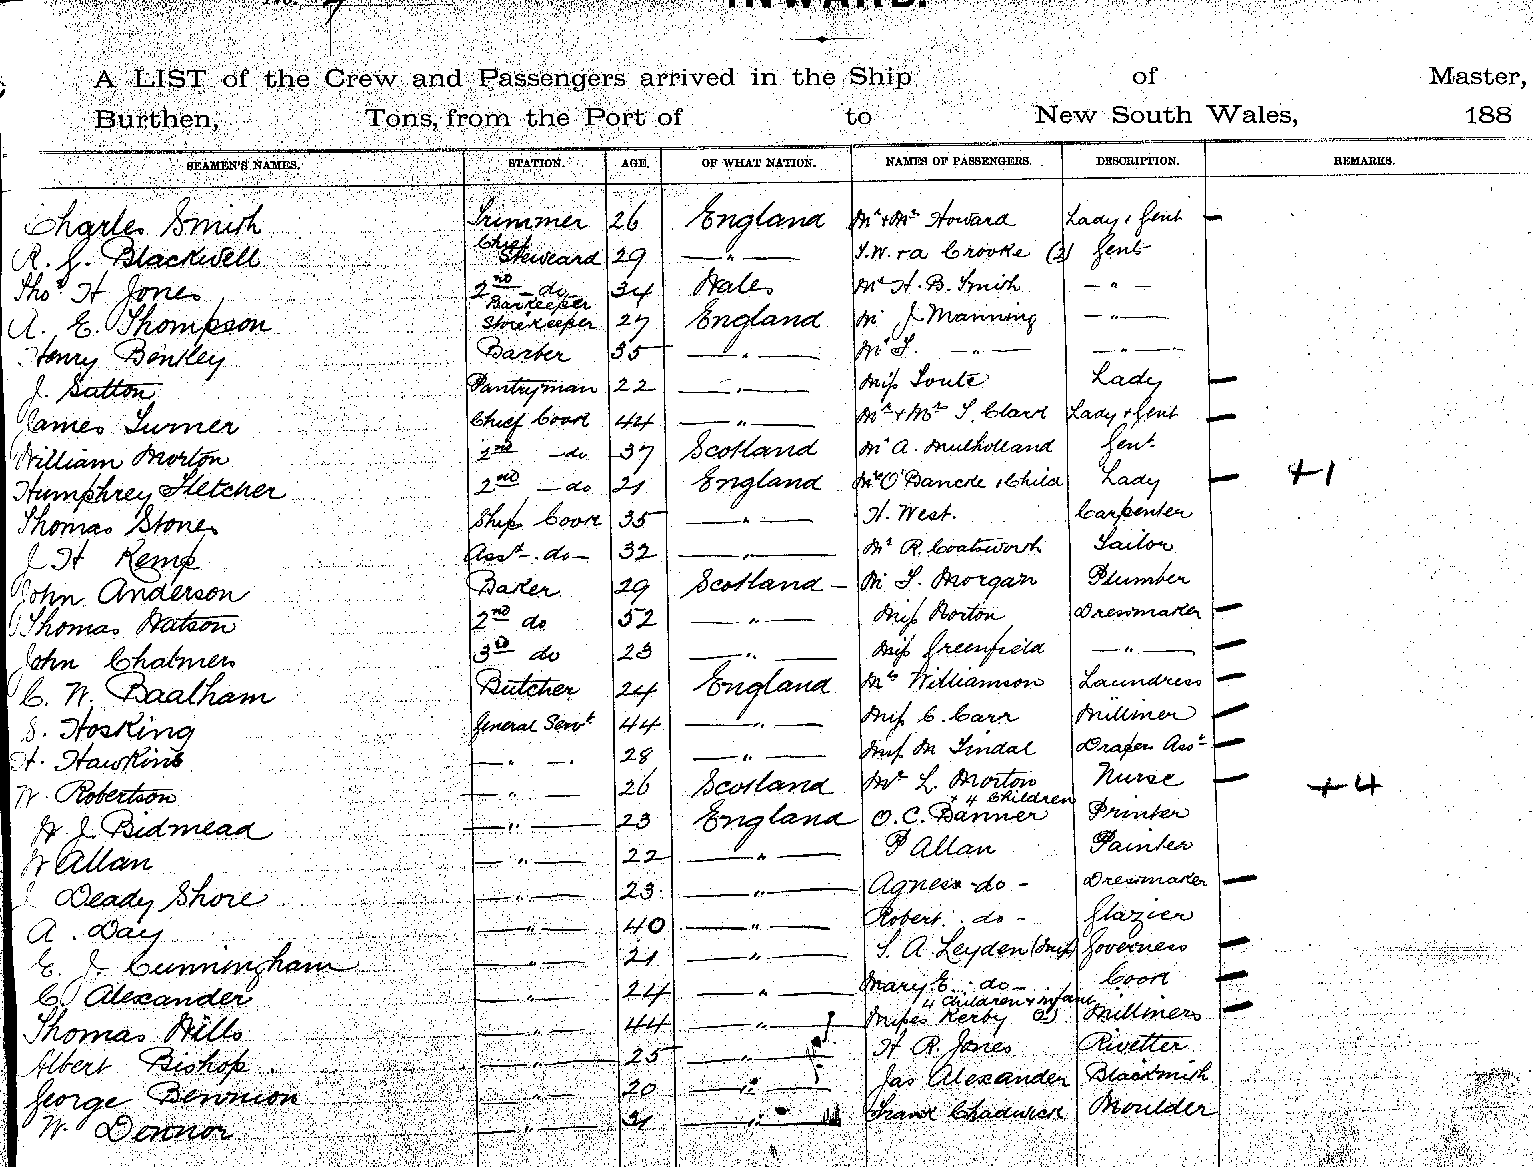 INWARD.
A LIST of the Crew and Passengers arrived in the Ship of Master,
Burthen, Tons, from the Port of to New South Wales, 188
SEAMEN'S NAMES. STATION. AGE. OF WHAT NATION. NAMES OF PASSENGERS. DESCRIPTION. REMARKS.
Charles Smith Trimmer 26 England Mr & Mrs Howard Lady & Gent —
R. J. Blackwell Chief Steweard 29 — " — T.W. & a Crooke (2) Gent
Thos H Jones 2nd — do 34 Wales Mr H. B. Smith — " —
A. E. Thompson Barkeeper Storekeeper 27 England Mr J Manning — " —
Henry Benkley Barber 35 — " — Mr T. — " — — " —
J. Sutton Pantryman 22 — " — Miss Toute Lady —
James Turner Chief Cook 44 — " — Mr & Mrs T. Clark Lady & Gent —
William Morton 2nd — do 37 Scotland Mr A. Mulholland Gent.
Humphrey Fletcher 2nd — do 21 England Mrs O' & Child Lady — +1
Thomas Stones Ship Cook 35 — " — H. West. Carpenter
J H Kemp Asst — do — 32 — " — Mr R. Coatsworth Tailor
John Anderson Baker 29 Scotland — Mr T. Morgan Plumber
Thomas Watson 2nd do 52 — " — Miss Norton Dressmaker —
John Chalmers 3rd do 23 — " — Miss Greenfield — " — —
C. W. Baalham Butcher 24 England Mrs Williamson Laundress —
S. Hosking General Servt 44 — " — Miss C. Carr Milliner —
H. Hawkins — " — 28 — " — Miss M Tindal Drapers Asst —
W. Robertson — " — 26 Scotland Mrs L. Morton + 4 Children Nurse — +4
W J. Bidmead — " — 23 England O. C. Banner Printer
W Allan — " — 22 — " — P Allan Painter
J Deady Shore — " — 23 — " — Agness - do - Dressmaker —
A. Day — " — 40 — " — Robert - do - Glazier
E. J. Cunningham — " — 21 — " — S. A Leyden (Miss) Governess —
C. Alexander — " — 24 — " — Mary E. - do - 4 Children & Infant Cook —
Thomas Wills — " — 44 — " — Misses Kerby (2) Milliners —
Albert Bishop. — " — 25 — " — H R. Jones Rivetter
George Bennion — " — 20 — " — Jas Alexander Blacksmith
W. Donnor — " — 31 — " — Frank Chadwick Moulder